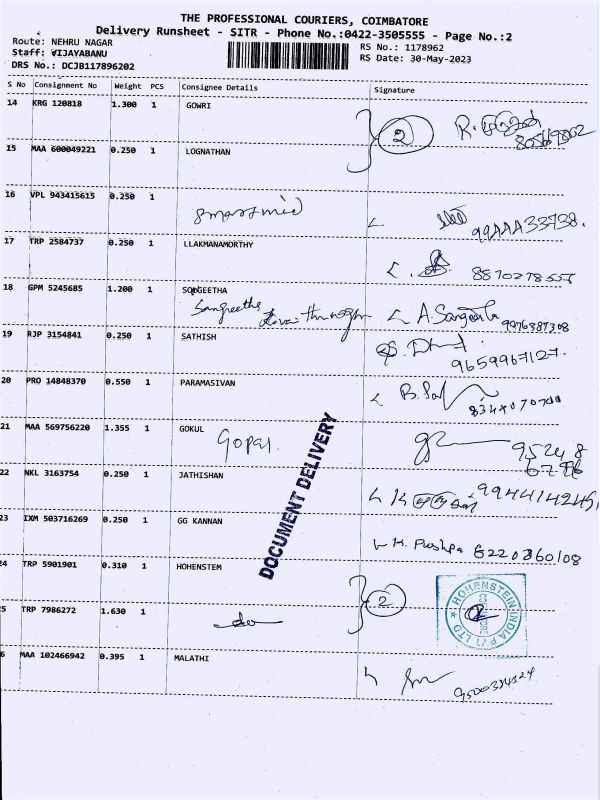 THE PROFESSIONAL COURIERS, COIMBATORE
Delivery Runsheet - SITR - Phone No.:0422-3505555 - Page No.:2
Route: NEHRU NAGAR
RS No.: 1178962
Staff: VIJAYABANU
RS Date: 30-May-2023
DRS No.: DCJB117896202
S No Consignment No Weight PCS Consignee Details Signature
14 KRG 120818 1.300 1 GOWRI
2 R.
15 MAA 600049221 0.250 1 LOGNATHAN
16 VPL 943415615 0.250 1
smartmed
99AAA33738.
17 TRP 2584737 0.250 1 LLAKMANAMORTHY
8870278555
18 GPM 5245685 1.200 1 SANGEETHA
Sangeetha A. Sangeetha 9976387308
19 RJP 3154841 0.250 1 SATHISH
9659967127.
20 PRO 14848370 0.550 1 PARAMASIVAN
21 MAA 569756220 1.355 1 GOKUL
Gopal. 95248
22 NKL 3163754 0.250 1 JATHISHAN
9944142451
DOCUMENT DELIVERY
23 IXM 503716269 0.250 1 GG KANNAN
K. Pushpa 6220360108
24 TRP 5901901 0.310 1 HOHENSTEM
2
HOHENSTEIN INDIA PVT LTD
25 TRP 7986272 1.630 1
do
26 MAA 102466942 0.395 1 MALATHI